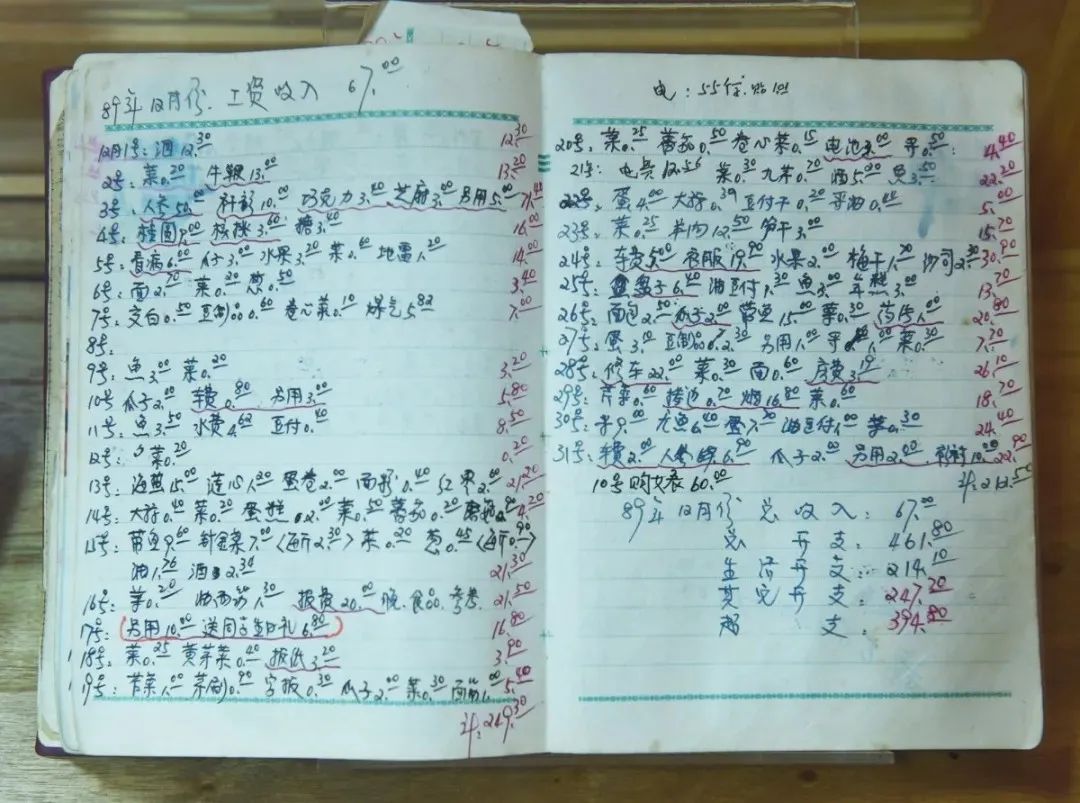 89年12月份. 工资收入 67.00
12月1号: 酒12.30 12.30
2号: 菜0.20 牛鞭13.00 13.20
3号: 人参50.00 衬衫10.00 巧克力3.40 芝麻3.00 另用5.00 71.40
4号: 桂圆9.00 核桃3.60 糖3.40 16.00
5号: 看病6.00 瓜子3.00 水果3.20 菜0.60 地雷1.20 14.00
6号: 面2.70 菜0.20 葱0.50 3.40
7号: 交白0.50 豆制品0.60 卷心菜0.10 煤气5.82 7.00
8号:
9号: 鱼3.00 菜0.20 3.20
10号 瓜子2.00 车费0.80 另用3.00 5.80
11号: 鱼3.50 水费4.62 豆付0.40 8.50
12号: 菜0.20 0.20
13号: 海蜇15.00 莲心1.20 蛋卷2.00 面形0.40 红枣2.00 21.20
14号: 大蒜0.40 菜0.20 蛋糕0.2.00 菜0.50 蕃茄0.20 4.20
15号: 带鱼9.60 针金菜7.00 (每斤2.30) 菜0.20 葱0.45 (每斤0.90)
油1.76 酒2.34 21.30
16号: 菜0.20 油面筋1.30 报费20.00 晚.食品.参考. 21.50
17号: 另用10.00 送同志生日礼6.80 16.80
18号: 菜0.25 黄芽菜0.40 报纸3.20 3.90
19号: 芹菜1.00 茅刷0.90 字报0.30 瓜子2.00 菜0.30 面筋1.00 5.40
计:249.30
电: 55
20号: 菜0.25 蕃茄0.50 卷心菜0.15 电池3.00 0.50 4.40
21号: 电费12.56 菜0.30 九茅0.70 酒5.20 鱼3.50 22.20
22号: 蛋4.00 大蒜0.39 豆付干0.20 0.45 5.00
23号: 菜0.25 羊肉12.50 笋干3.00 15.70
24号: 车费5.00 衣服19.90 水果2.00 梅干1.70 沙司2.30 30.90
25号: 6.40 油豆付1.30 鱼3.00 年糕3.00 13.70
26号: 面包2.50 瓜子2.00 带鱼15.00 菜0.30 药片1.00 20.80
27号: 蛋3.10 豆制品0.2.30 另用1.00 菜0.30 7.70
28号: 修车22.00 菜0.30 面0.60 房费3.19 26.10
29号: 芹菜0.60 0.70 烟16.80 菜0.60 18.70
30号: 9.00 九鱼6.40 蛋7.70 油豆付1.00 菜0.30 24.40
31号: 车费2.00 6.90 瓜子2.00 另用2.00 10.00 22.90
10号购女表60.00 计:212.50
89年12月份 总收入: 67.00
总开支: 461.80
生活开支: 214.10
其它开支: 247.70
超支: 394.80